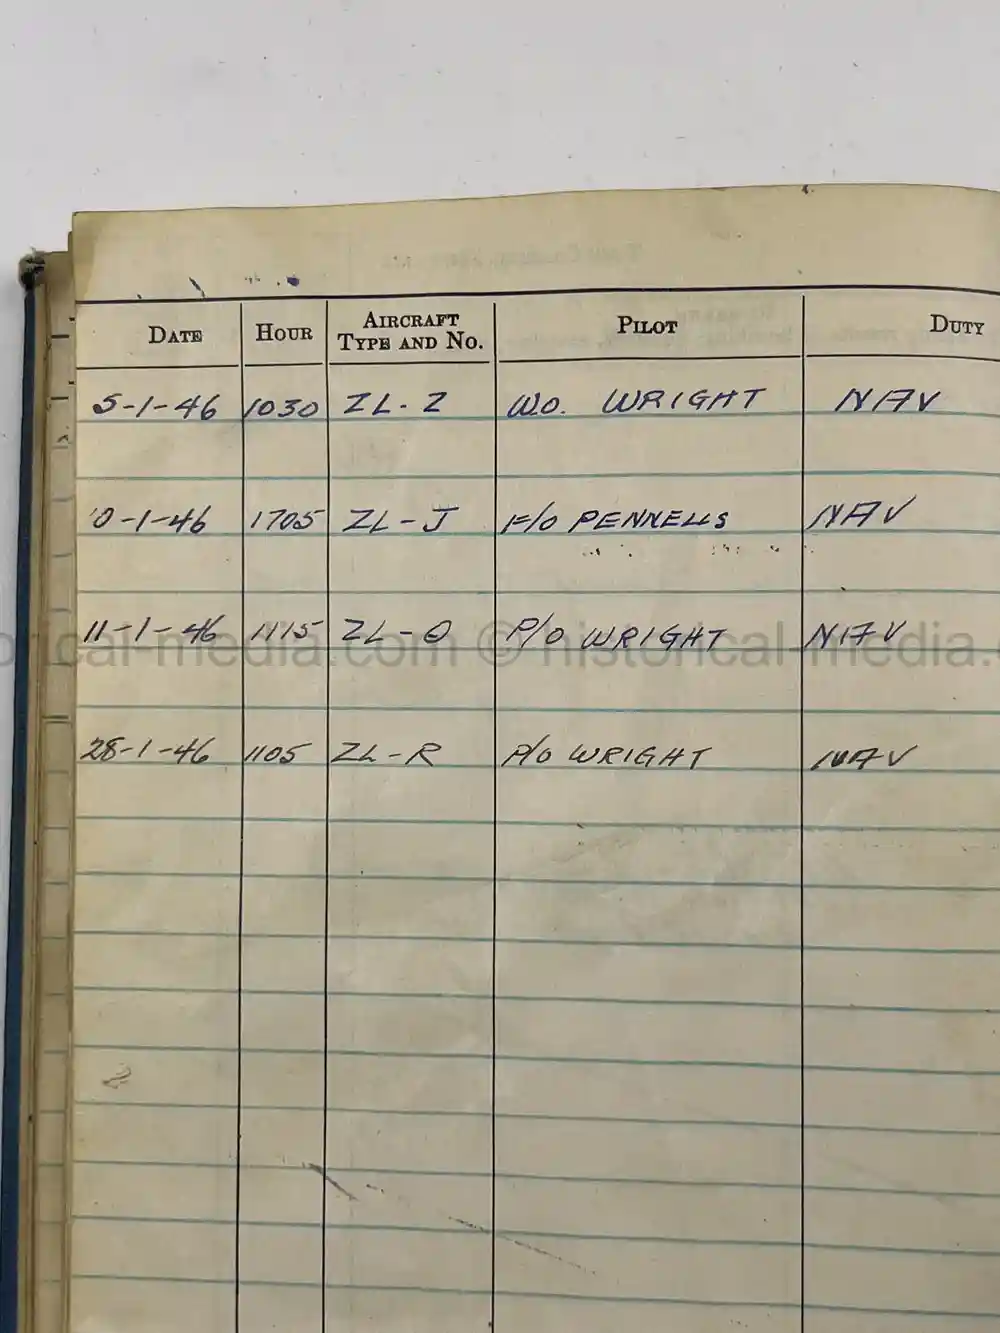 DATE HOUR AIRCRAFT TYPE AND No. PILOT DUTY
5-1-46 1030 ZL-Z W.O. WRIGHT NAV
10-1-46 1705 ZL-J F/O PENNELLS NAV
11-1-46 1115 ZL-O P/O WRIGHT NAV
orical-media.com © historical-media.c
28-1-46 1105 ZL-R P/O WRIGHT NAV